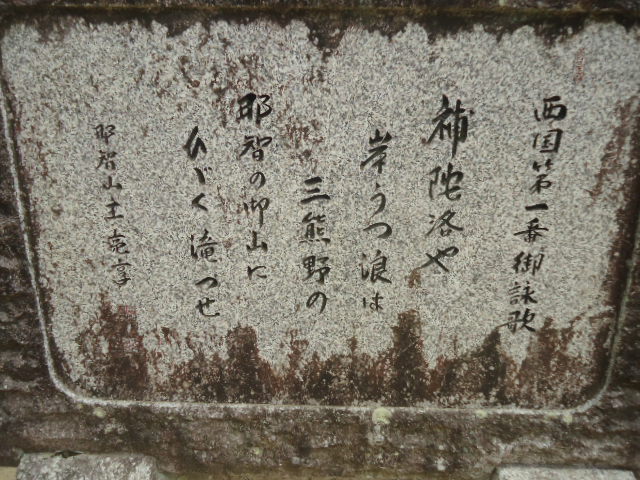 西国第一番御詠歌
補陀洛や
岸うつ浪は
三熊野の
那智の御山に
ひびく滝つせ
那智山主亮享